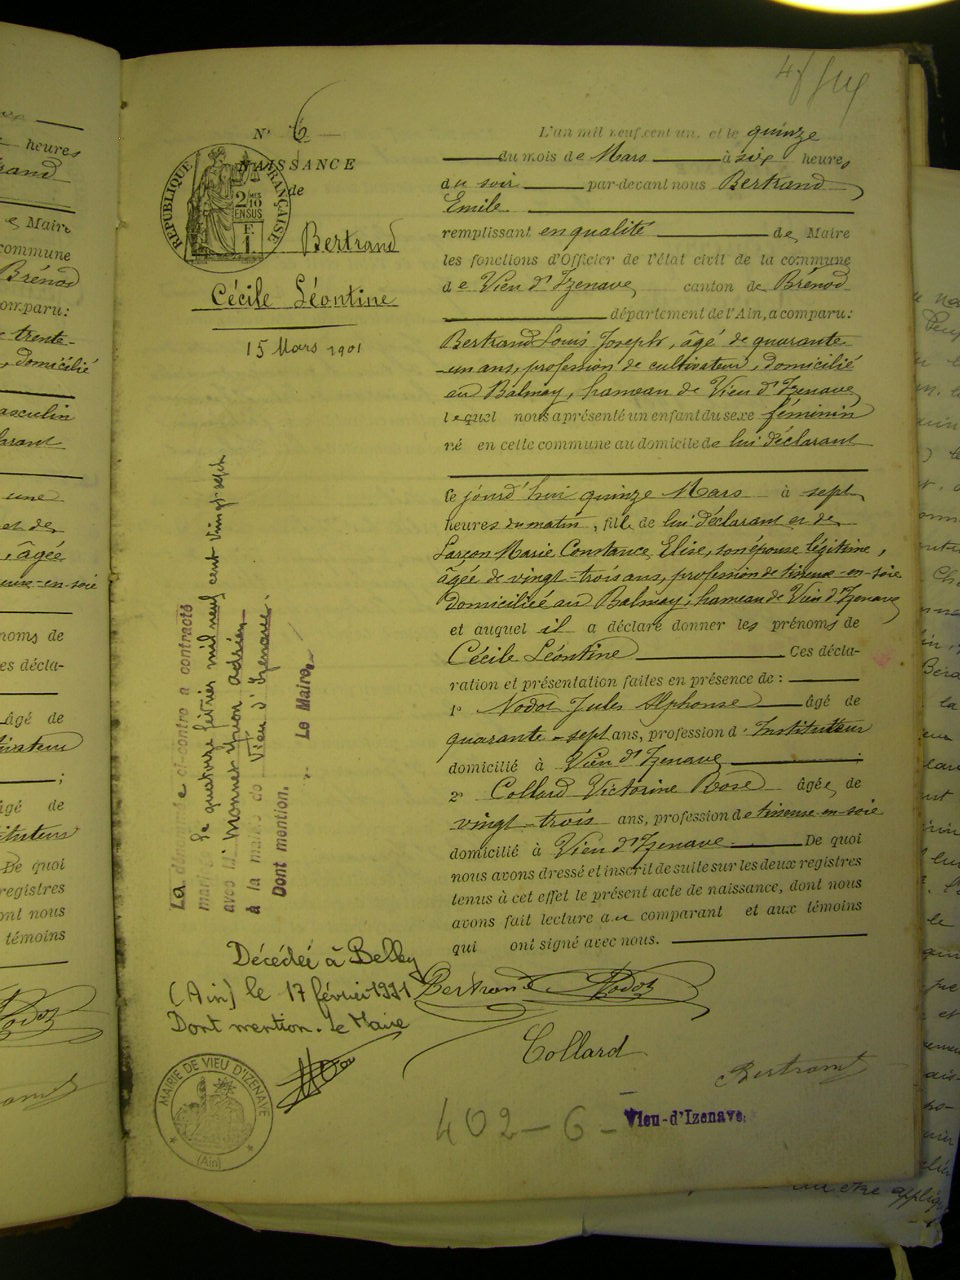 N° 6
NAISSANCE
de
RÉPUBLIQUE FRANÇAISE
2/10
EN SUS
F.
1.
Bertrand
Cécile Léontine
15 Mars 1901
L'an mil neuf cent un, et le quinze
du mois de Mars à six heures
du soir par-devant nous Bertrand
Emile
remplissant en qualité de Maire
les fonctions d'Officier de l'état civil de la commune
de Vieu d'Izenave canton de Brénod
département de l'Ain, a comparu:
Bertrand Louis Joseph, âgé de quarante
-un ans, profession de cultivateur, domicilié
au Balmay, hameau de Vieu d'Izenave
lequel nous a présenté un enfant du sexe féminin
né en cette commune au domicile de lui déclarant
le jourd'hui quinze Mars à sept
heures du matin, fille de lui déclarant et de
Marie Constance Elise, son épouse légitime,
âgée de vingt-trois ans, profession de tisseuse-en-soie
domiciliée au Balmay, hameau de Vieu d'Izenave
et auquel il a déclaré donner les prénoms de
Cécile Léontine Ces décla-
ration et présentation faites en présence de :
1° Nodot Jules Alphonse âgé de
quarante-sept ans, profession d'Instituteur
domicilié à Vieu d'Izenave ;
2° Collard Victorine Rose âgée de
vingt-trois ans, profession de tisseuse-en-soie
domicilié à Vieu d'Izenave De quoi
nous avons dressé et inscrit de suite sur les deux registres
tenus à cet effet le présent acte de naissance, dont nous
avons fait lecture au comparant et aux témoins
qui ont signé avec nous.
Bertrand Nodot
Collard
Bertrand
La dénommée ci-contre a contracté
mariage le quatorze février mil neuf cent vingt-sept
avec le Sr Monnet Yvon Adrien
à la mairie de Vieu d'Izenave.
Dont mention.
Le Maire,
Décédée à Belley
(Ain) le 17 février 1991
Dont mention. Le Maire
MAIRIE DE VIEU D'IZENAVE
(Ain)
402-6-
Vieu-d'Izenave
heures
Maire
commune
Brénod
comparu:
trente-
, domicilié
masculin
une
et de
, âgée
noms de
es décla-
âgé de
;
âgé de
De quoi
registres
ont nous
témoins